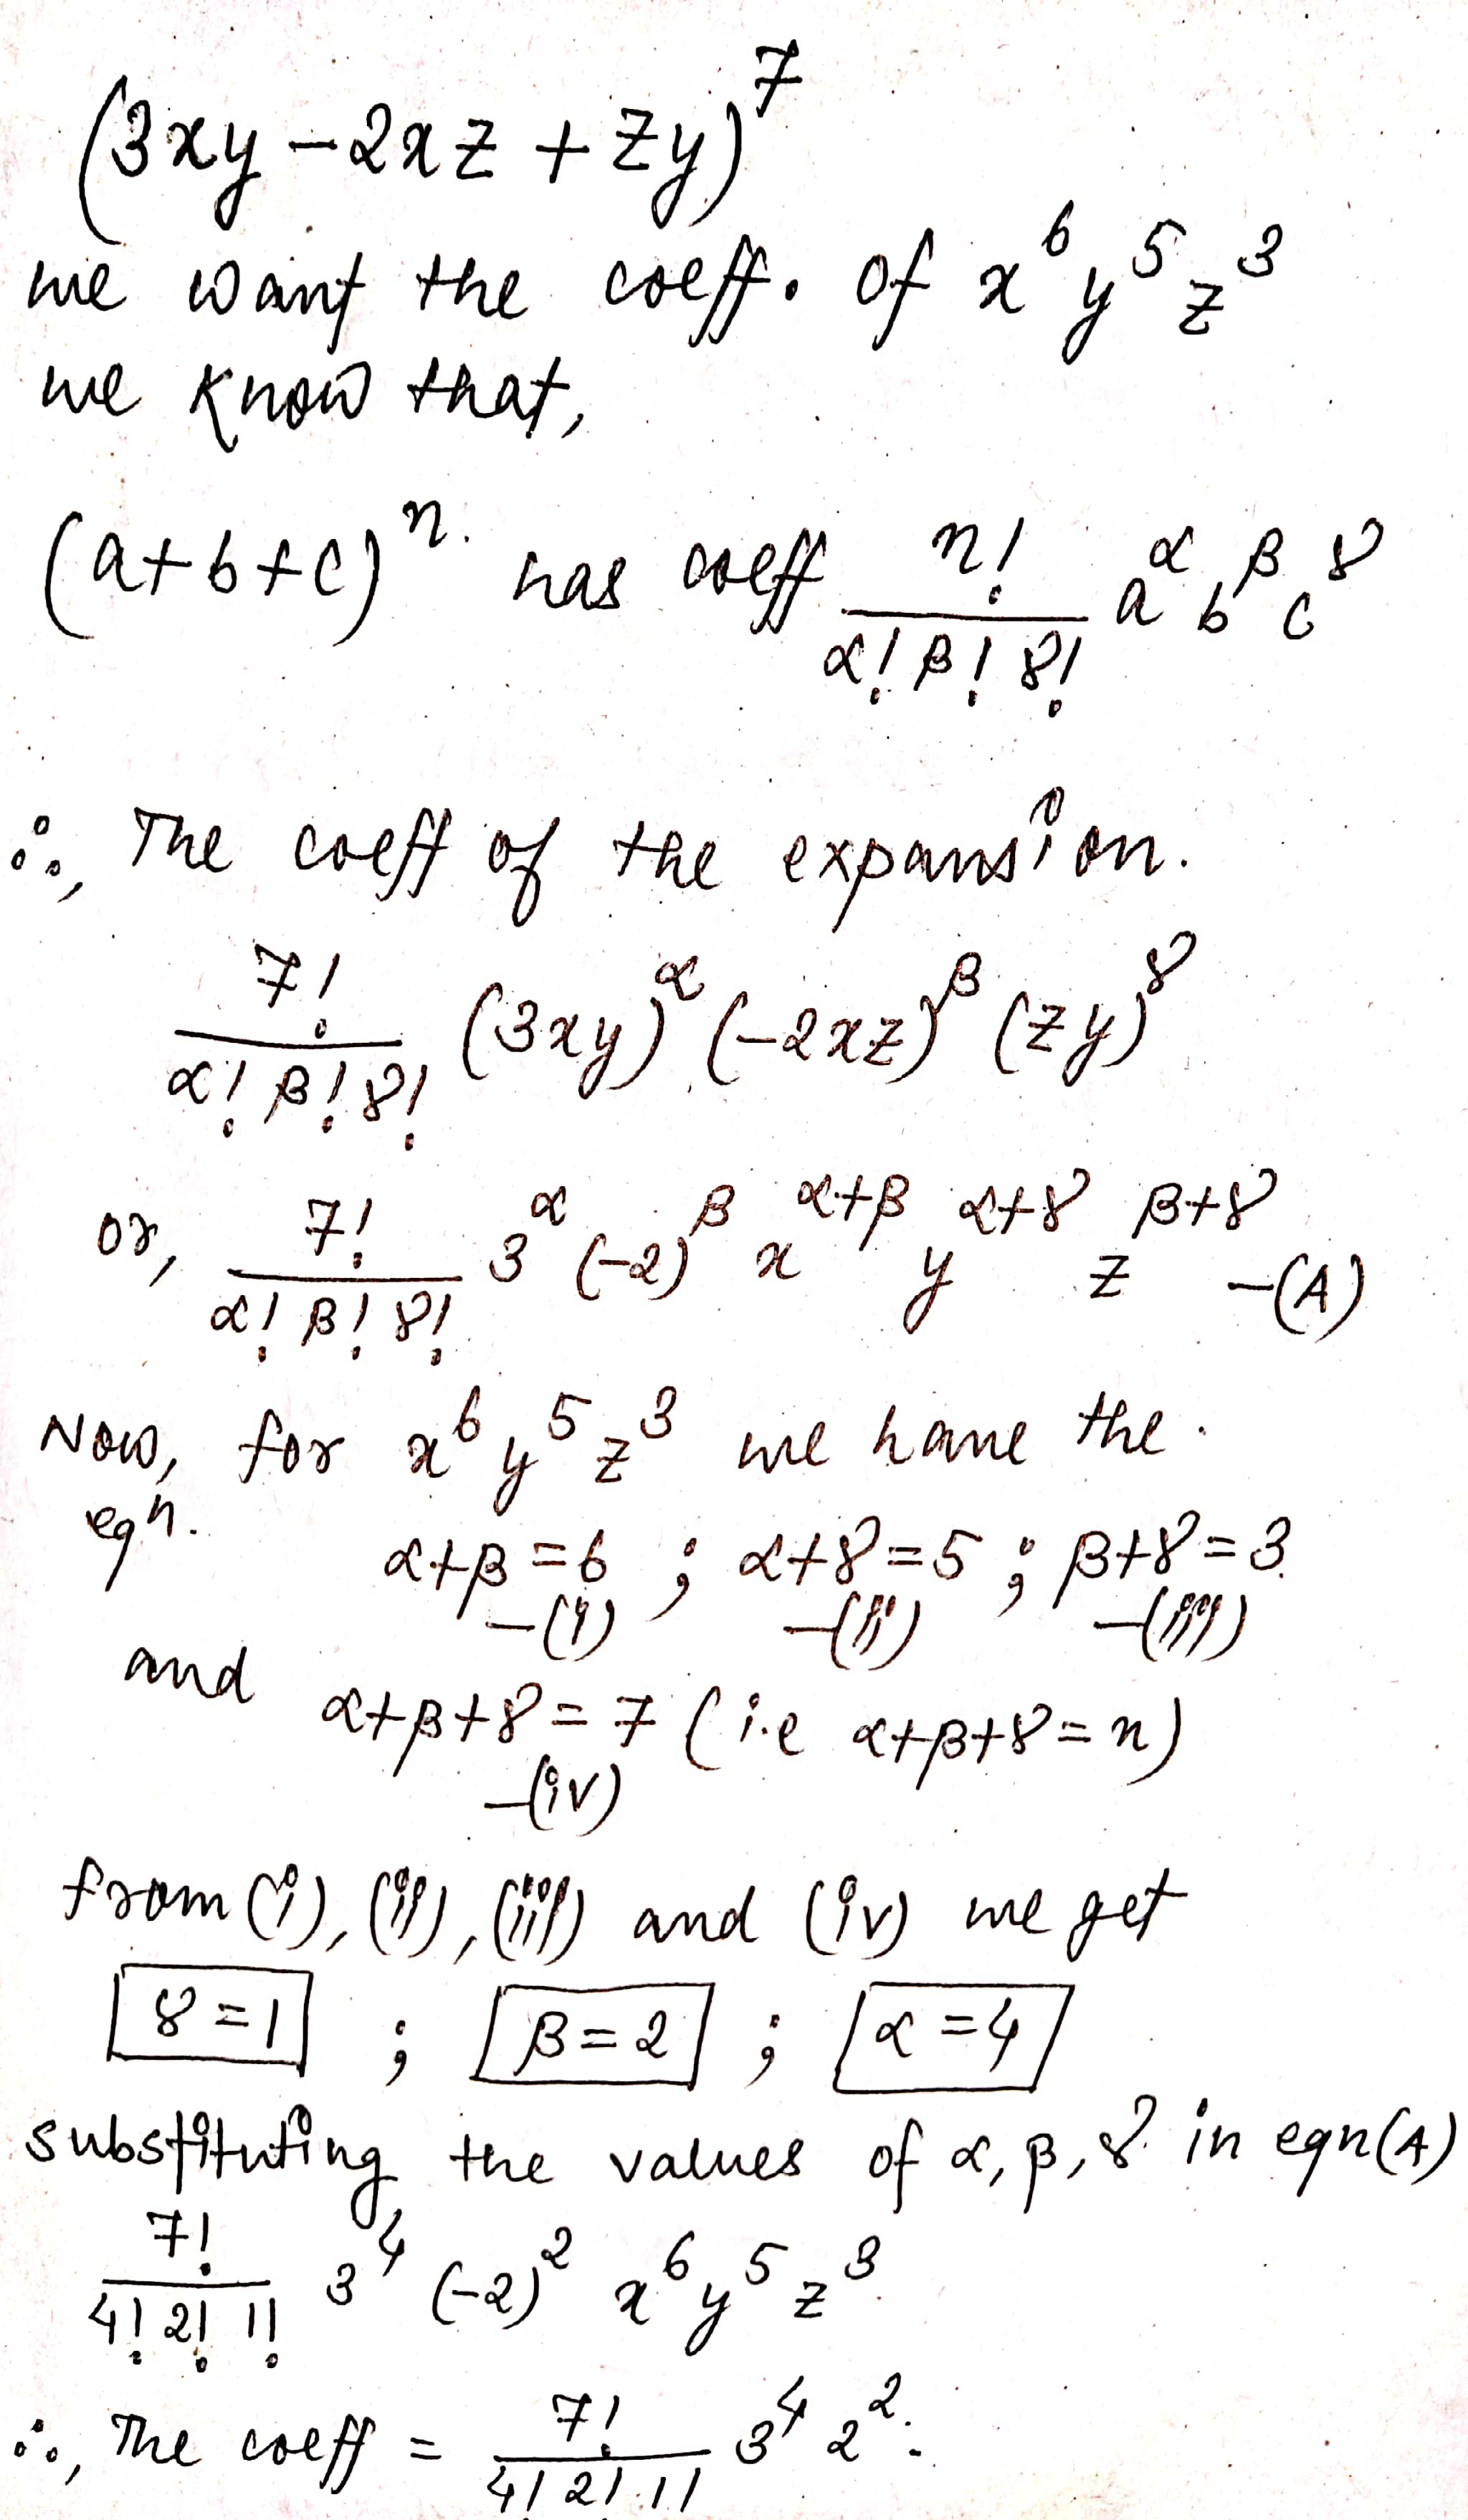 (3xy - 2xz + zy)^7
we want the coeff. of x^6 y^5 z^3
we know that,
(a+b+c)^n has coeff n!/(α! β! γ!) a^α b^β c^γ
∴, The coeff of the expansion.
7!/(α! β! γ!) (3xy)^α (-2xz)^β (zy)^γ
or, 7!/(α! β! γ!) 3^α (-2)^β x^(α+β) y^(α+γ) z^(β+γ) -(A)
Now, for x^6 y^5 z^3 we have the
eqn.
α+β=6 ; α+γ=5 ; β+γ=3
-(i) -(ii) -(iii)
and α+β+γ=7 (i.e α+β+γ=n)
-(iv)
from (i), (ii), (iii) and (iv) we get
γ=1 ; β=2 ; α=4
substituting the values of α, β, γ in eqn(A)
7!/(4! 2! 1!) 3^4 (-2)^2 x^6 y^5 z^3
∴, The coeff = 7!/(4! 2! 1!) 3^4 2^2.